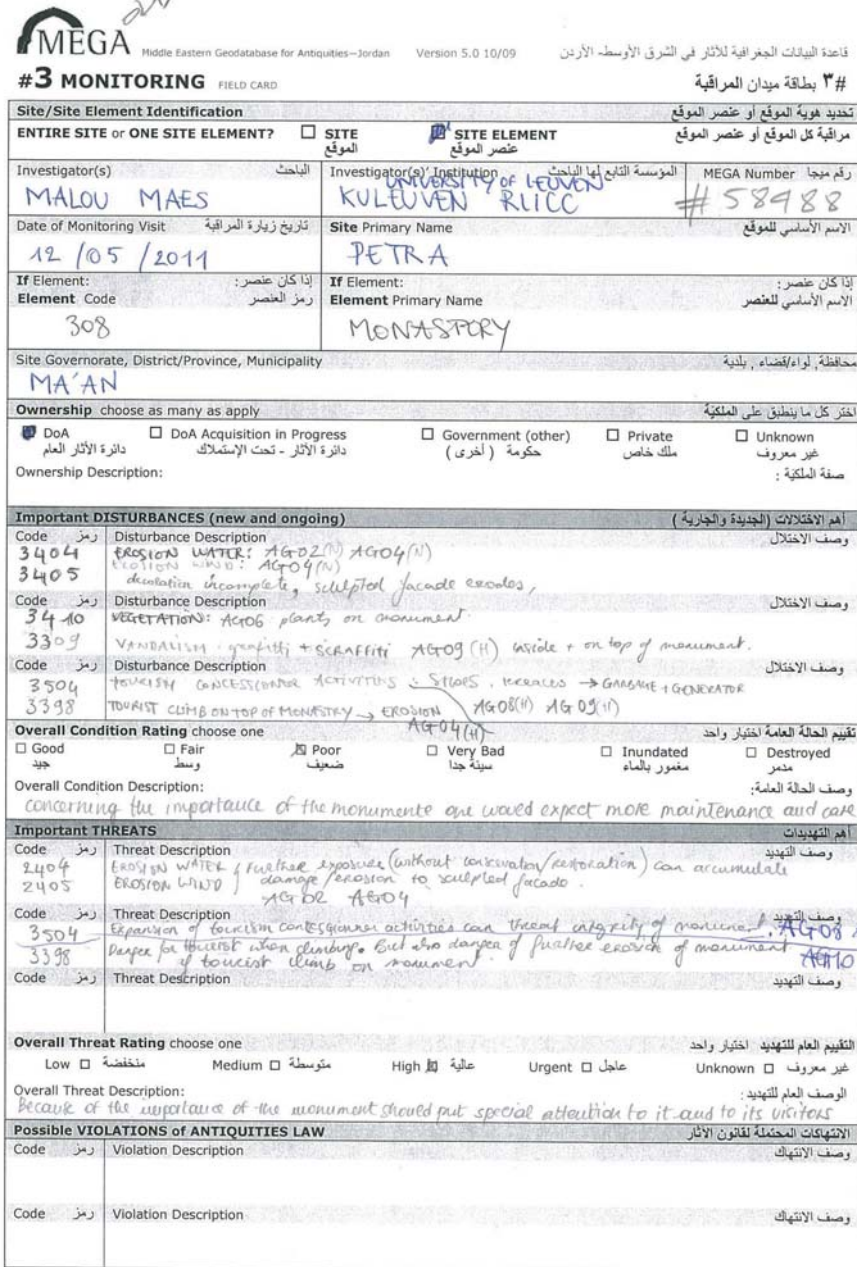 MEGA Middle Eastern Geodatabase for Antiquities—Jordan Version 5.0 10/09 قاعدة البيانات الجغرافية للآثار في الشرق الأوسط- الأردن
#3 MONITORING FIELD CARD #٣ بطاقة ميدان المراقبة
Site/Site Element Identification تحديد هوية الموقع أو عنصر الموقع
ENTIRE SITE or ONE SITE ELEMENT? ☐ SITE ☒ SITE ELEMENT مراقبة كل الموقع أو عنصر الموقع
الموقع عنصر الموقع
Investigator(s) الباحث Investigator(s)' Institution المؤسسة التابع لها الباحث MEGA Number رقم ميجا
UNIVERSITY OF LEUVEN
MALOU MAES KULEUVEN RLICC #58488
Date of Monitoring Visit تاريخ زيارة المراقبة Site Primary Name الاسم الأساسي للموقع
12/05/2011 PETRA
If Element: إذا كان عنصر: If Element: إذا كان عنصر:
Element Code رمز العنصر Element Primary Name الاسم الأساسي للعنصر
308 MONASTORY
Site Governorate, District/Province, Municipality محافظة, لواء/قضاء, بلدية
MA'AN
Ownership choose as many as apply اختر كل ما ينطبق على الملكية
☒ DoA ☐ DoA Acquisition in Progress ☐ Government (other) ☐ Private ☐ Unknown
دائرة الآثار العام دائرة الآثار - تحت الإستملاك حكومة (أخرى) ملك خاص غير معروف
Ownership Description: صفة الملكية :
Important DISTURBANCES (new and ongoing) أهم الاختلالات (الجديدة والجارية)
Code رمز Disturbance Description وصف الاختلال
3404 EROSION WATER: AG02(N) AG04(N)
3405 EROSION WIND: AG04(N)
incomplete, sculpted facade erodes,
Code رمز Disturbance Description وصف الاختلال
3410 VEGETATION: AG06 plants on monument
3309 VANDALISM graffitti + SCRAFFITI AG09(H) inside + on top of monument.
Code رمز Disturbance Description وصف الاختلال
3504 TOURISM ACTIVITIES → GARBAGE + GENERATOR
3398 TOURIST CLIMB ON TOP OF MONASTRY → EROSION AG08(H) AG09(H)
AG04(H)
Overall Condition Rating choose one تقييم الحالة العامة اختيار واحد
☐ Good ☐ Fair ☒ Poor ☐ Very Bad ☐ Inundated ☐ Destroyed
جيد وسط ضعيف سيئة جدا مغمور بالماء مدمر
Overall Condition Description: وصف الحالة العامة:
concerning the importance of the monumente one woued expect more maintenance and care
Important THREATS أهم التهديدات
Code رمز Threat Description وصف التهديد
2404 EROSION WATER further exposure (without conservation/restoration) can accumulate
2405 EROSION WIND damage/erosion to sculpted facade.
AG02 AG04
Code رمز Threat Description وصف التهديد
3504 Expansion of tourism activities can threat integrity of AG08
3398 Danger for tourist when climbing. But also danger of further erosion of monument AG10
if tourist climb on monument.
Code رمز Threat Description وصف التهديد
Overall Threat Rating choose one التقييم العام للتهديد اختيار واحد
Low ☐ منخفضة Medium ☐ متوسطة High ☒ عالية Urgent ☐ عاجل Unknown ☐ غير معروف
Overall Threat Description: الوصف العام للتهديد:
Because of the importance of the monument should put special attention to it and to its visitors
Possible VIOLATIONS of ANTIQUITIES LAW الانتهاكات المحتملة لقانون الآثار
Code رمز Violation Description وصف الانتهاك
Code رمز Violation Description وصف الانتهاك